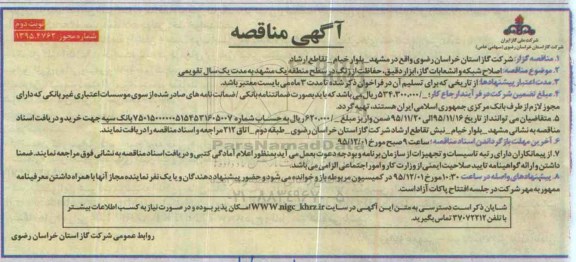 نوبت دوم
شماره مجوز ۱۳۹۵.۶۷۶۲
آگهی مناقصه
شرکت ملی گاز ایران
شرکت گاز استان خراسان رضوی (سهامی خاص)
۱. مناقصه گزار: شرکت گاز استان خراسان رضوی واقع در مشهد_بلوار خیام_ تقاطع ارشاد
۲. موضوع مناقصه: اصلاح شبکه و انشعابات گاز، ابزار دقیق، حفاظت از زنگ در سطح منطقه یک مشهد به مدت یک سال تقویمی
۳. مدت اعتبار پیشنهادها: از تاریخی که برای تسلیم آن در فراخوان ذکر شده تا مدت ۳ ماه می بایست معتبر باشد.
۴. مبلغ تضمین شرکت در فرآیند ارجاع کار: _/۵۳۴,۳۰۰,۰۰۰ ریال می باشد که باید بصورت ضمانتنامه بانکی /ضمانت نامه های صادر شده از سوی موسسات اعتباری غیر بانکی که دارای
مجوز لازم از طرف بانک مرکزی جمهوری اسلامی ایران هستند، تهیه گردد.
۵. متقاضیان می توانند از تاریخ ۹۵/۱۱/۱۶ الی ۹۵/۱۱/۲۰ ضمن واریز مبلغ _/۶۲۰,۰۰۰ ریال به حساب شماره بانک سپه جهت خرید و دریافت اسناد
مناقصه به نشانی مشهد_ بلوار خیام_ نبش تقاطع ارشاد شرکت گاز استان خراسان رضوی_ طبقه دوم_ اتاق ۲۱۲ مراجعه و اسناد مناقصه را دریافت نمایند.
۶. آخرین مهلت بازگرداندن اسناد مناقصه: ساعت ۹ صبح مورخ ۹۵/۱۲/۰۱
۷. از پیمانکاران دارای رتبه تاسیسات و تجهیزات از سازمان برنامه و بودجه دعوت بعمل می آید بمنظور اعلام آمادگی کتبی و دریافت اسناد مناقصه به نشانی فوق مراجعه نمایند. ضمنا
داشتن و ارائه گواهینامه تایید صلاحیت ایمنی از وزارت کار و امور اجتماعی الزامی می باشد.
۸. پیشنهادهای واصله در ساعت ۱۰:۳۰ مورخ ۹۵/۱۲/۰۱ در کمیسیون مربوطه باز و خوانده می شود و حضور پیشنهاد دهندگان و یا یک نفر نماینده مجاز آنها با همراه داشتن معرفینامه
ممهور به مهر شرکت در جلسه افتتاح پاکات آزاد است.
شایان ذکر است دسترسی به متن این آگهی در سایت WWW.nigc_khrz.ir امکان پذیر بوده و در صورت نیاز به کسب اطلاعات بیشتر
با تلفن ۳۷۰۷۲۲۱۲ تماس بگیرید.
روابط عمومی شرکت گاز استان خراسان رضوی